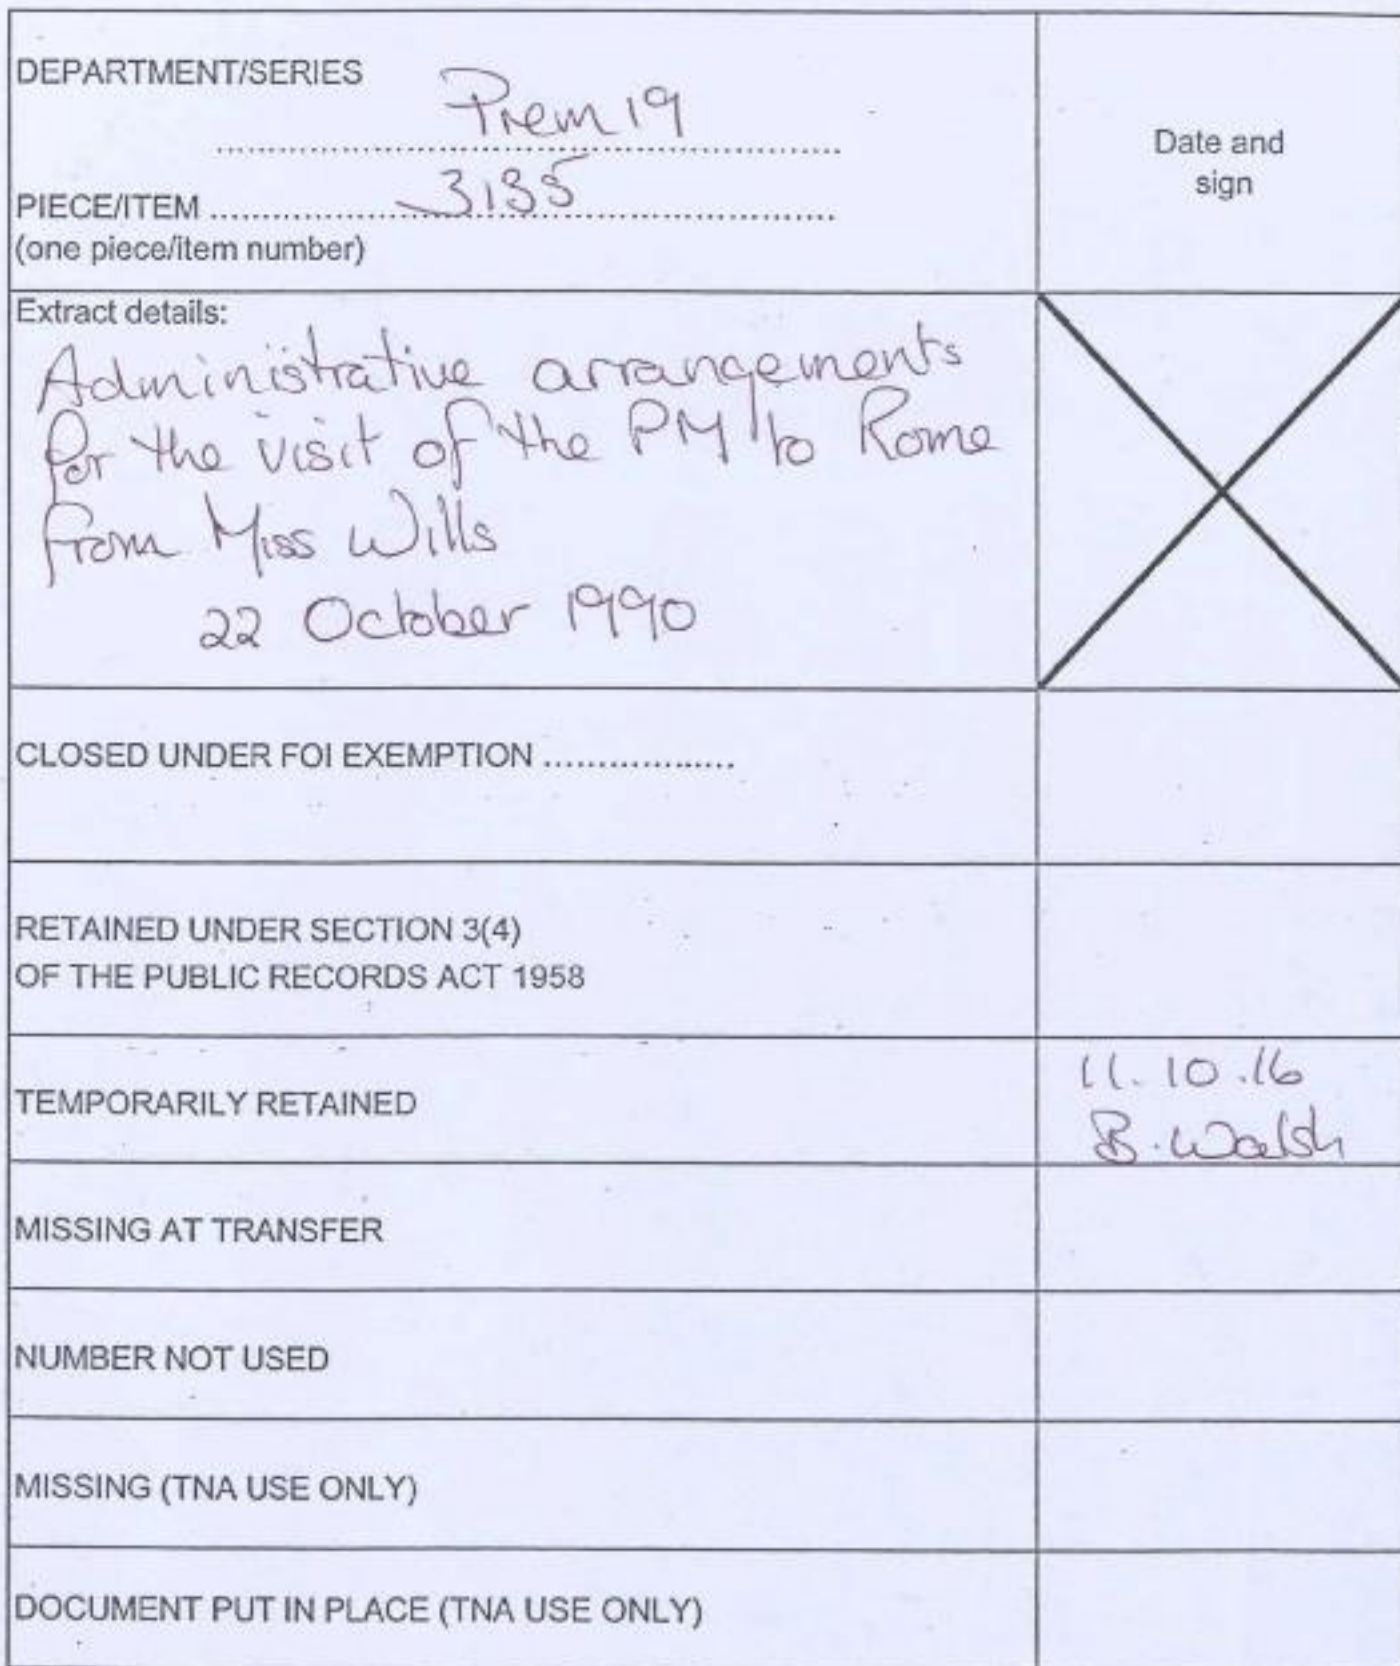 DEPARTMENT/SERIES
Prem 19
Date and
sign
PIECE/ITEM .......... 3135
(one piece/item number)
Extract details:
Administrative arrangements
for the visit of the PM to Rome
from Miss Wills
22 October 1990
CLOSED UNDER FOI EXEMPTION ..................
RETAINED UNDER SECTION 3(4)
OF THE PUBLIC RECORDS ACT 1958
TEMPORARILY RETAINED
11.10.16
B. Walsh
MISSING AT TRANSFER
NUMBER NOT USED
MISSING (TNA USE ONLY)
DOCUMENT PUT IN PLACE (TNA USE ONLY)